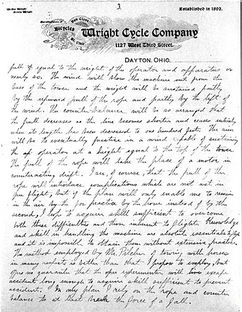 Established in 1892.
Wright Cycle Company
1127 West Third Street.
DAYTON, OHIO.
3
pull equal to the weight of the operator and apparatus or
nearly so. The wind will blow the machine out from the
base of the tower and the weight will be sustained partly
by the upward pull of the rope and partly by the lift of
the wind. The counterbalance will be so arranged that
the pull decreases as the line becomes shorter and ceases entirely
when its length has been decreased to one hundred feet. The aim
will be to eventually practice in a wind capable of sustaining
the operator at a height equal to the top of the tower.
The pull of the rope will take the place of a motor in
counteracting drift. I see, of course, that the pull of the
rope will introduce complications which are not met in
free flight, but if the plan will only enable me to remain
in the air for practice by the hour instead of by the
second, I hope to acquire skill sufficient to overcome
both these difficulties and those inherent to flight. Knowledge
and skill in handling the machine are absolute essentials to flight
and it is impossible to obtain them without extensive practice.
The method employed by Mr. Pilcher of towing with horses
in many respects is better than that I propose to employ, but
offers no guarantee that the experimenter will escape
accident long enough to acquire skill sufficient to prevent
accident. In my plan I rely on the rope and counter
balance to at least break the force of a fall.